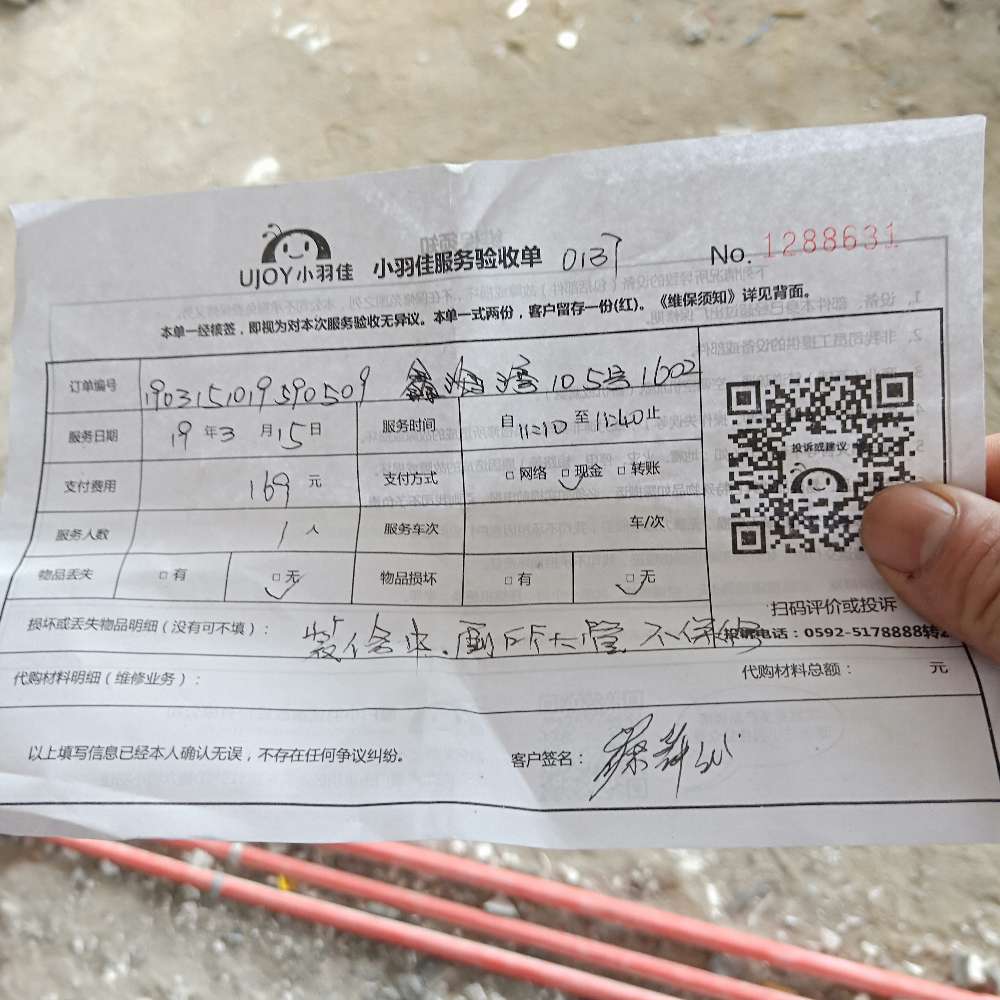 UJOY小羽佳 小羽佳服务验收单 0137 No. 1288631
本单一经核签，即视为对本次服务验收无异议。本单一式两份，客户留存一份(红)。《维保须知》详见背面。
订单编号 1903151019590509 鑫海湾105号1602
服务日期 19年3月15日 服务时间 自11:10至11:40止
支付费用 169元 支付方式 □网络 □现金 □转账
服务人数 1人 服务车次 车/次
投诉或建议
物品丢失 □有 □无 物品损坏 □有 □无
扫码评价或投诉
损坏或丢失物品明细（没有可不填）： 厕所大堂 不保修
投诉电话：0592-5178888转2
代购材料明细（维修业务）： 代购材料总额： 元
以上填写信息已经本人确认无误，不存在任何争议纠纷。 客户签名：